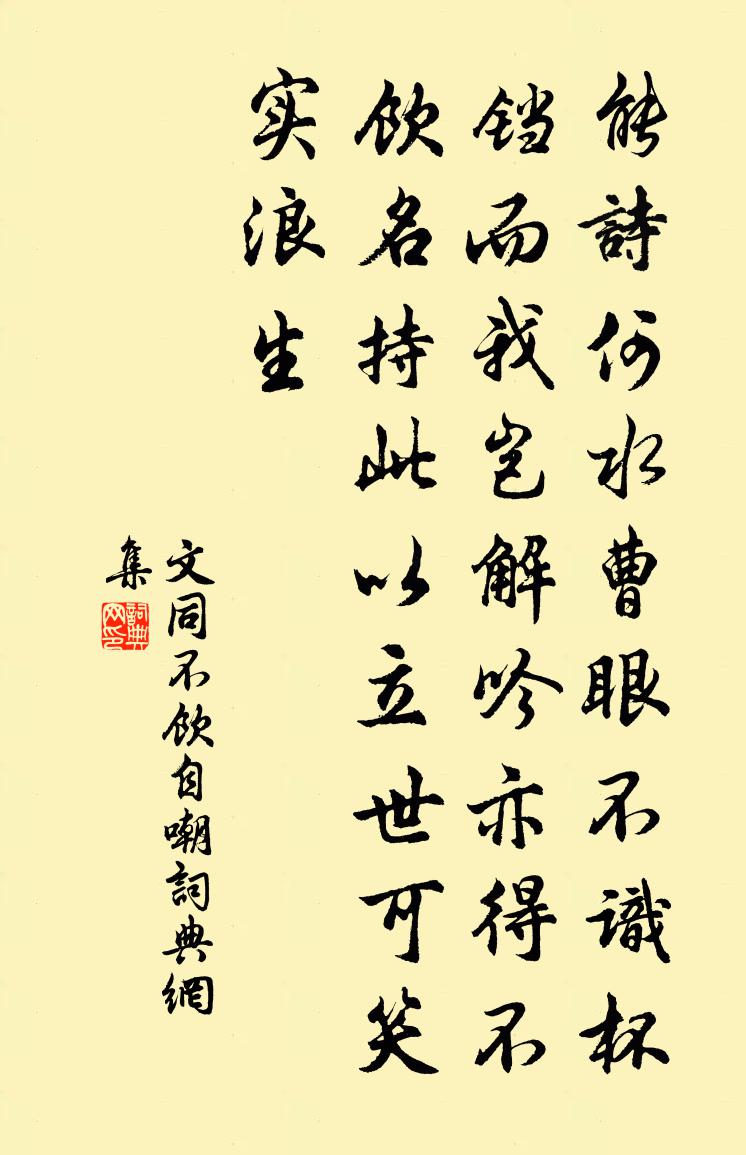 能詩何水曹眼不識杯
铛而我岂解吟亦得不
飲名持此以立世可笑
实浪生
文同不飲自嘲詞典網
集
詞典
网印